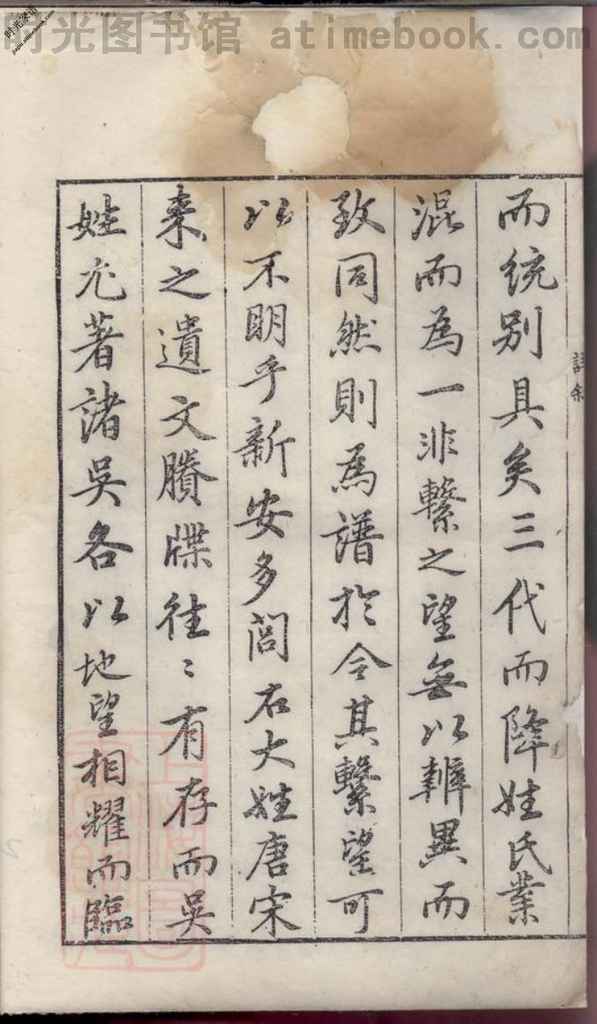 时光图书馆 atimebook.com
而统别具矣三代而降姓氏業
混而為一非繫之望無以辨異而
致同然則為譜於今其繫望可
以不明乎新安多閥右大姓唐宋
来之遺文賸牒往〻有存而吳
姓尤著諸吳各以地望相耀而臨